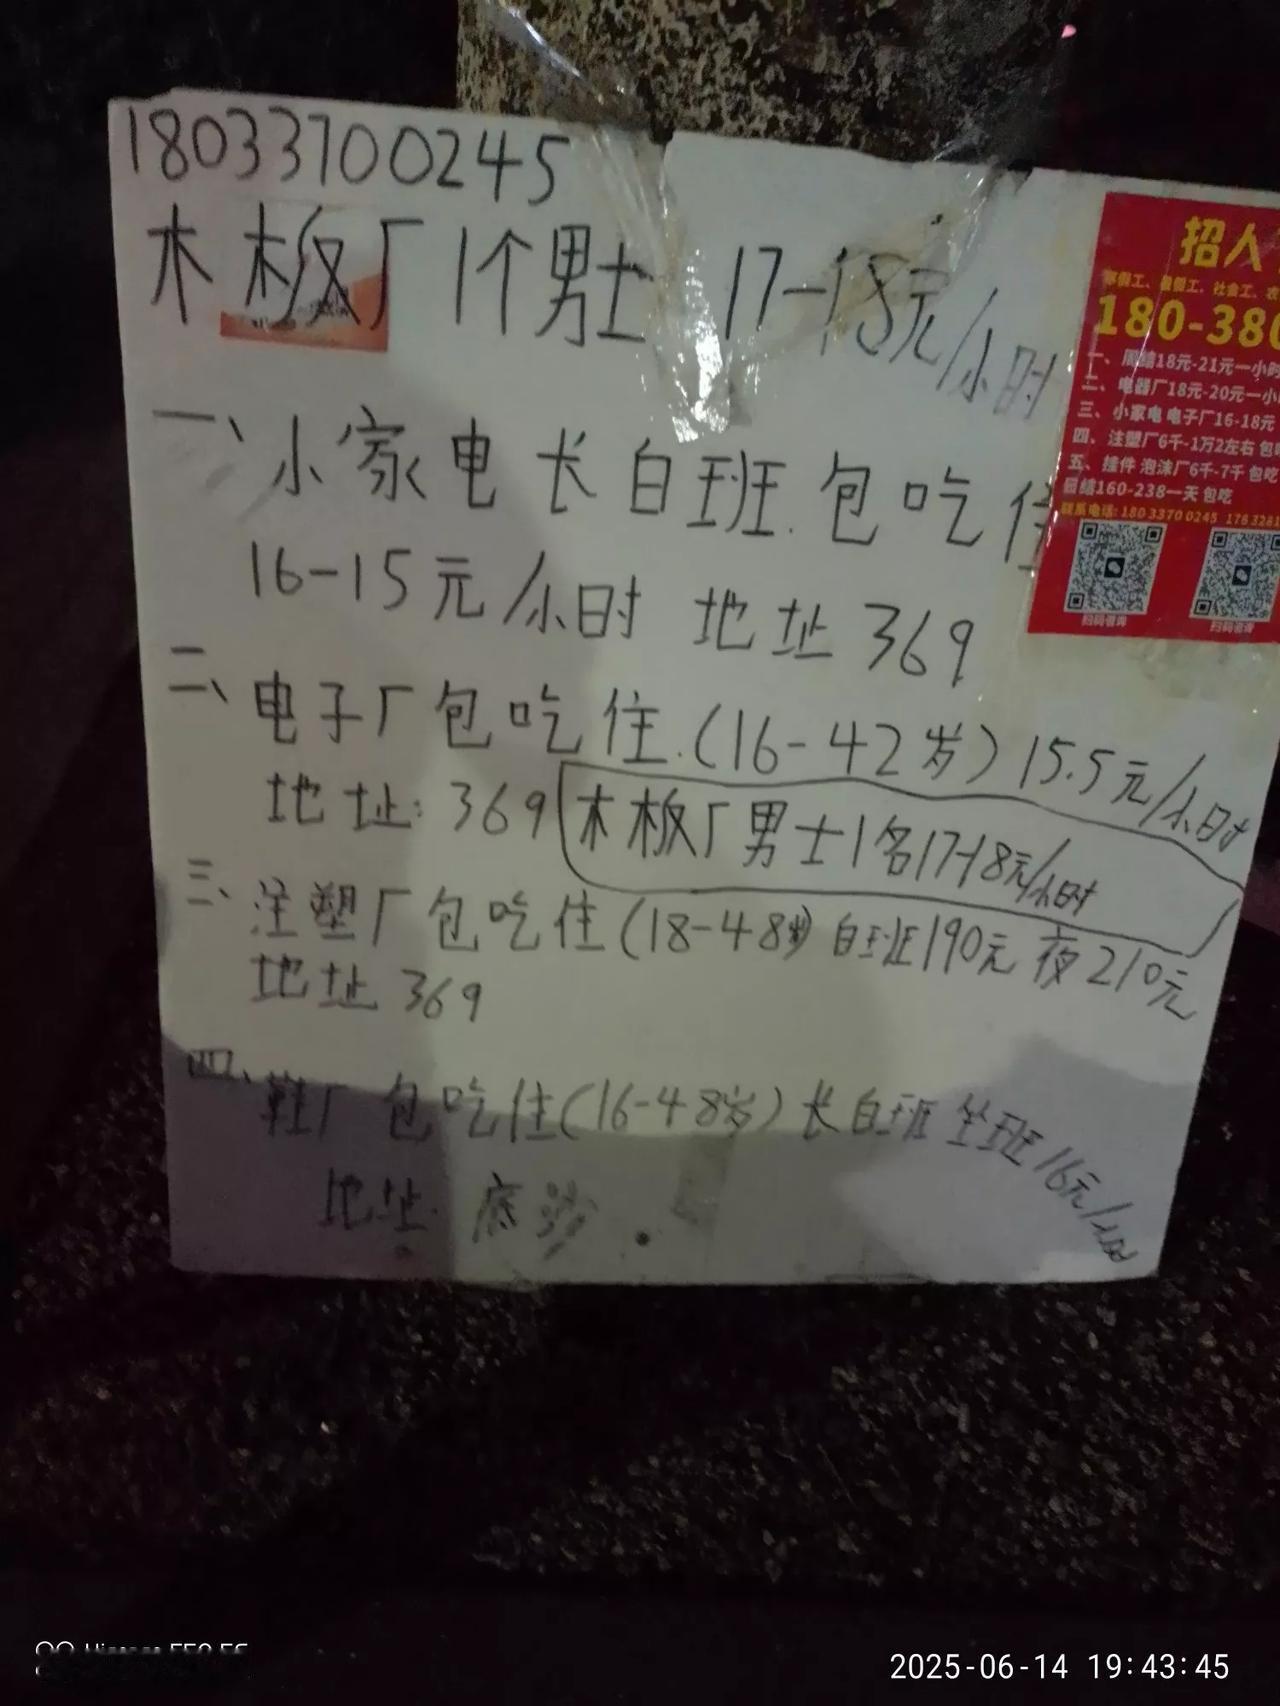 18033700245
木板厂1个男士 17-18元/小时
一、小家电长白班.包吃住
16-15元/小时 地址369
二、电子厂包吃住.(16-42岁)15.5元/小时
地址:369
木板厂男士1名17-18元/小时
三、注塑厂包吃住(18-48岁)白班190元 夜210元
地址369
四、鞋厂包吃住(16-48岁)长白班坐班16元/小时
地址.
招人
寒假工、暑假工、社会工、农
180-380
一、周结18元-21元一小时
二、电器厂18元-20元一小
三、小家电 电子厂16-18元
四、注塑厂6千-1万2左右 包
五、挂件 泡沫厂6千-7千 包吃
日结160-238一天 包吃
联系电话: 180 3370 0245 176 328
扫码咨询 扫码咨询
2025-06-14 19:43:45